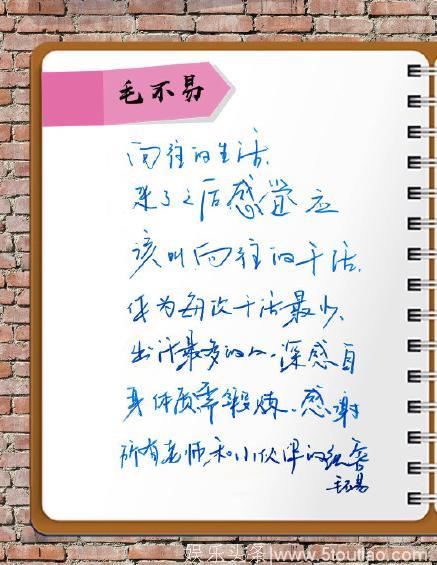 毛不易
向往的生活,
来了之后感觉应
该叫向往的干活,
作为每次干活最少、
出汗最多的人,深感自
身体质需锻炼、感谢
所有老师和小伙伴的
毛不易
娱乐头条|www.5toutiao.com